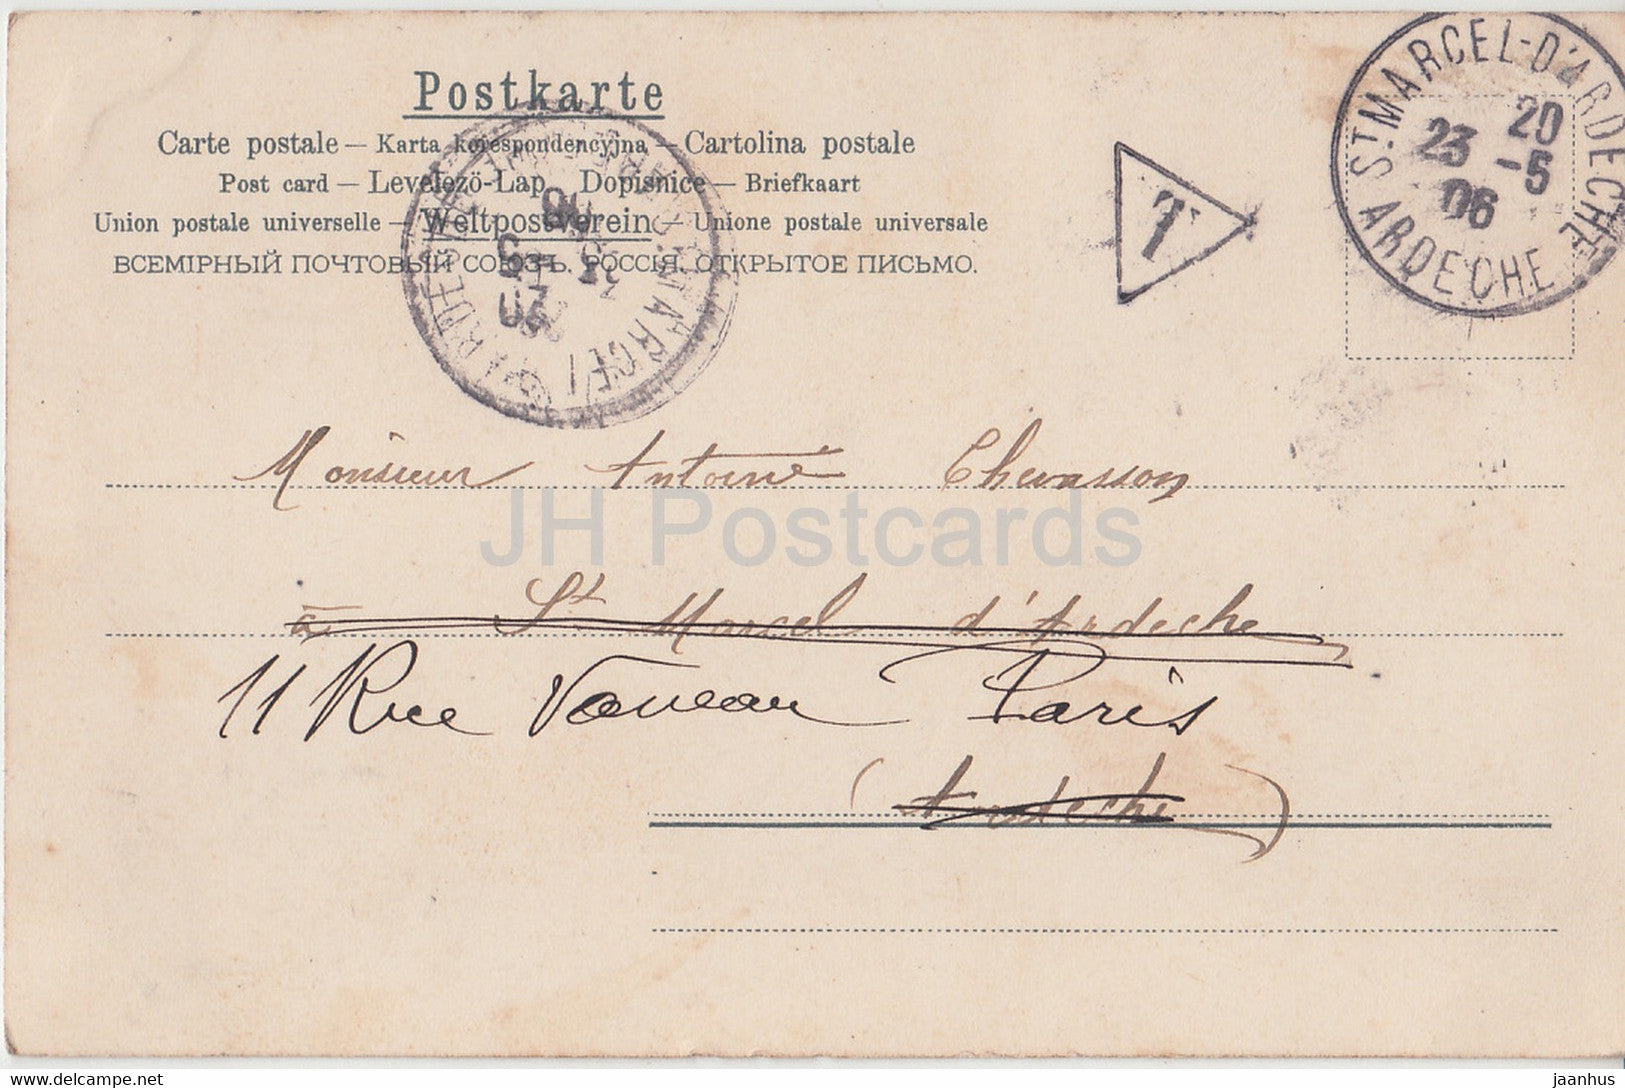 Postkarte
Carte postale — Karta korespondencyjna — Cartolina postale
Post card — Levelezö-Lap Dopisnice — Briefkaart
Union postale universelle — Weltpostverein — Unione postale universale
ВСЕМІРНЫЙ ПОЧТОВЫЙ СОЮЗЪ. РОССІЯ. ОТКРЫТОЕ ПИСЬМО.
ST MARCEL-D'ARDECHE
20
23 -5
06
ARDECHE
T
Monsieur Antoine Chevasson
JH Postcards
à St Marcel d'Ardèche
11 Rue Vaneau Paris
(Ardèche)
jaanhus